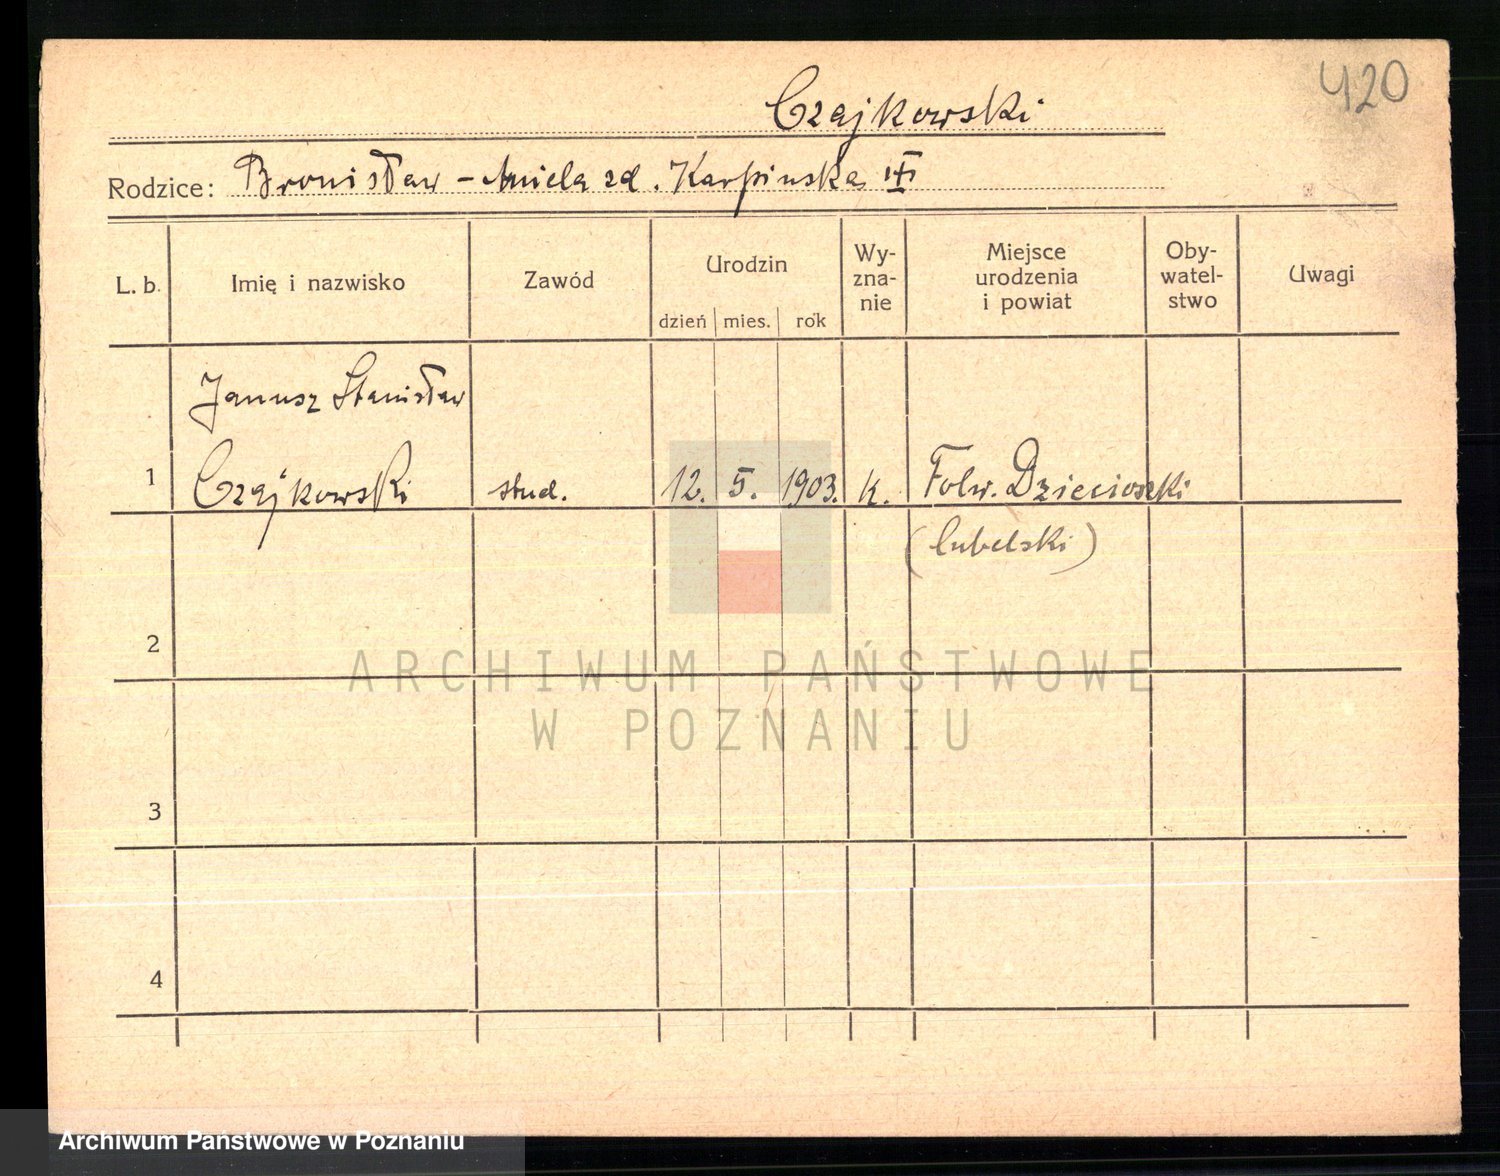 420
Czajkowski
Rodzice: Bronisław - Aniela zd. Karpinska
L. b. Imię i nazwisko Zawód Urodzin Wy-zna-nie Miejsce urodzenia i powiat Oby-watel-stwo Uwagi
dzień mies. rok
Janusz Stanisław
1 Czajkowski stud. 12. 5. 1903. k. Folw. Dziecioszki
(lubelski)
2
3
4
ARCHIWUM PAŃSTWOWE
W POZNANIU
Archiwum Państwowe w Poznaniu